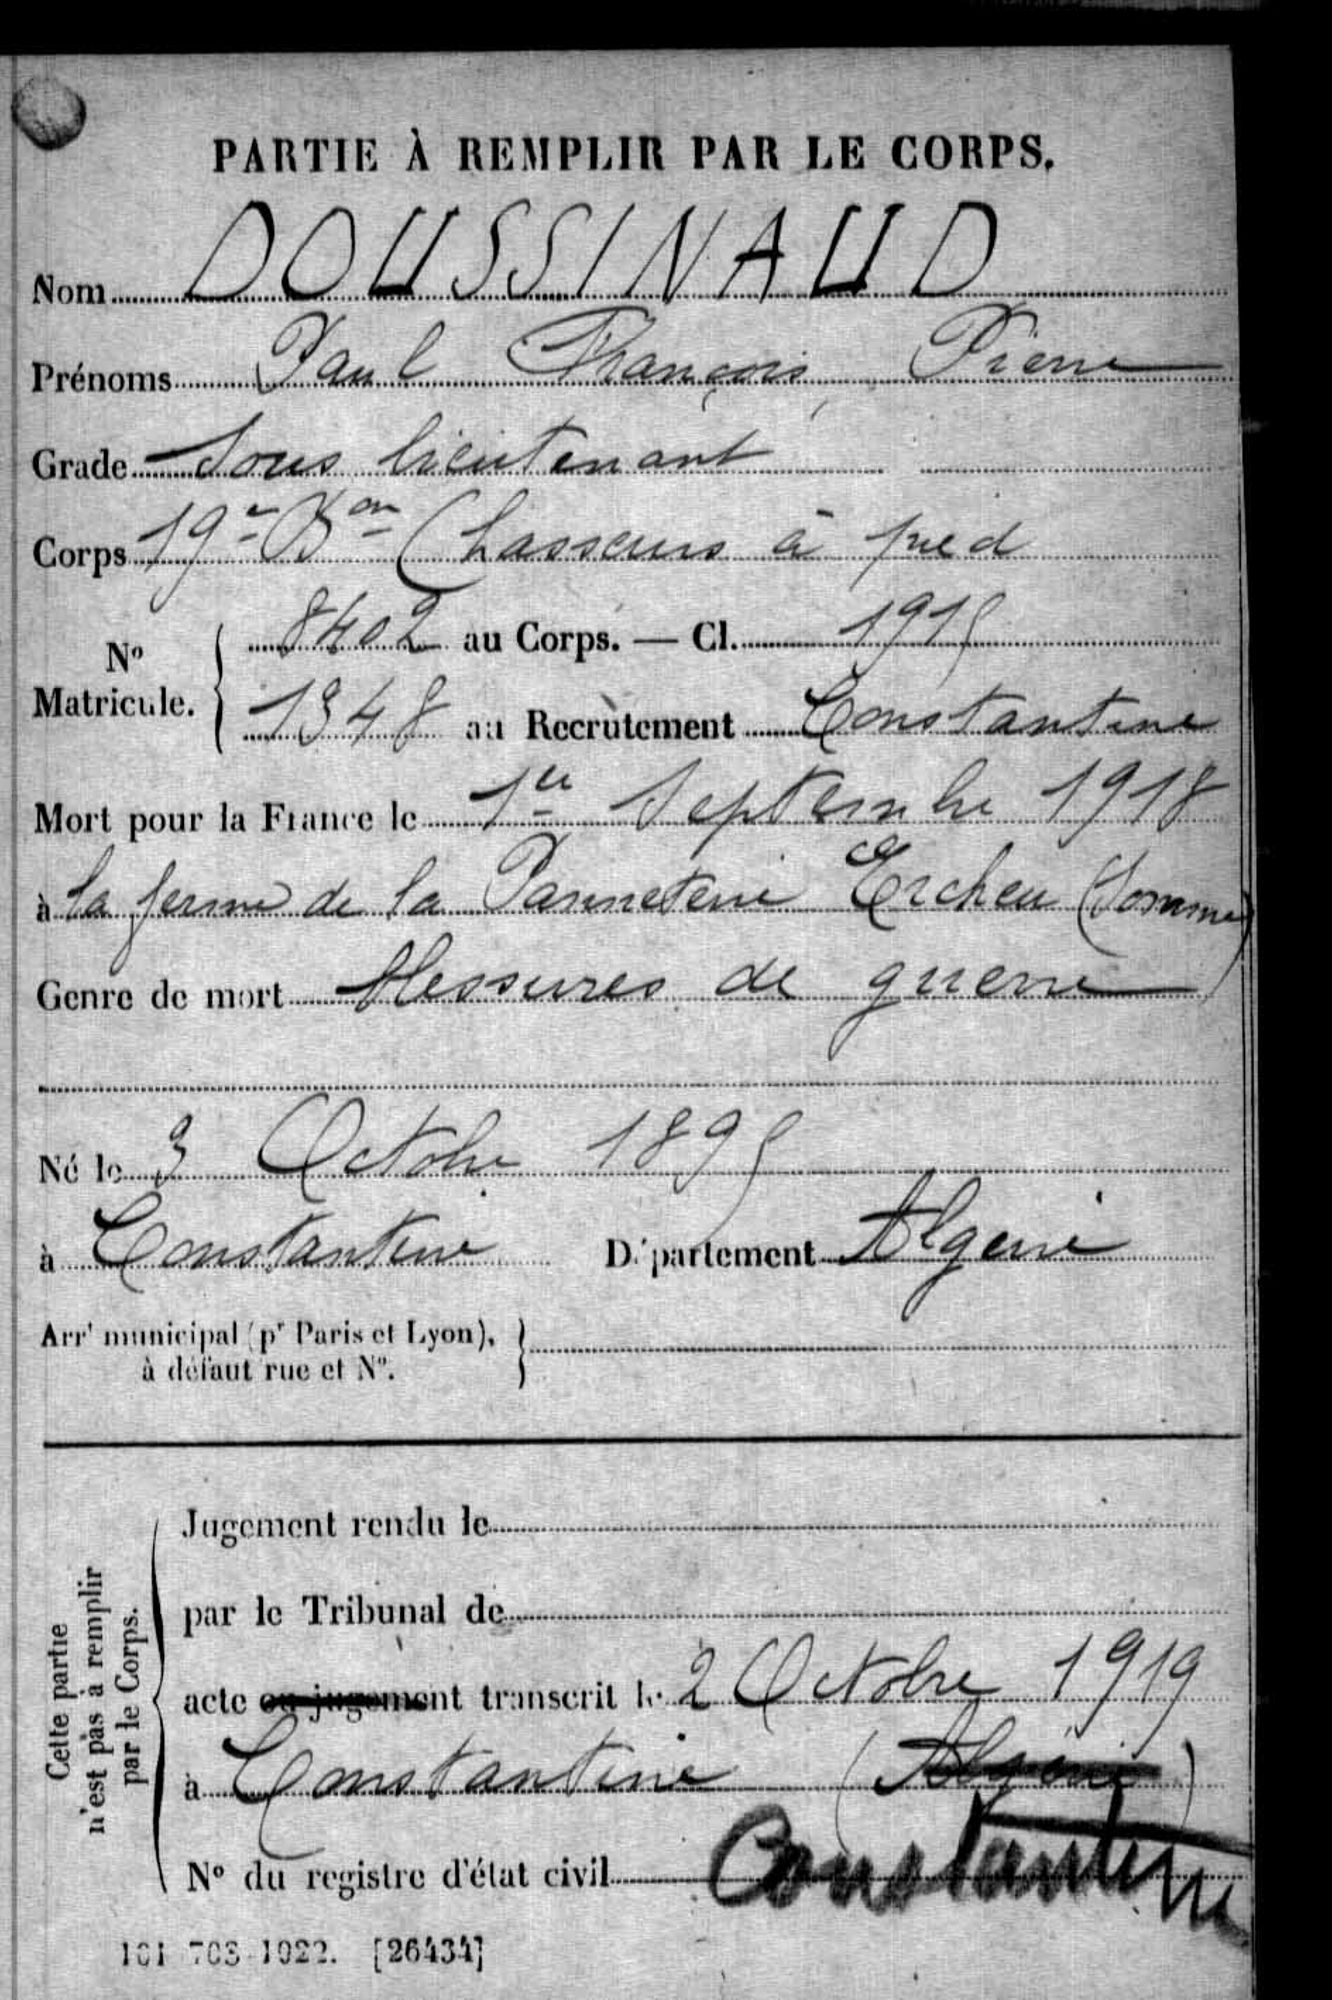 PARTIE À REMPLIR PAR LE CORPS.
Nom DOUSSINAUD
Prénoms Paul François, Pierre
Grade Sous lieutenant
Corps 19e Bon Chasseurs à pied
No Matricule. 8402 au Corps. — Cl. 1915
1348 au Recrutement Constantine
Mort pour la France le 1er Septembre 1918
à la ferme de la Panneterie Ercheu (Somme)
Genre de mort blessures de guerre
Né le 3 Octobre 1895
à Constantine Département Algérie
Arrt municipal (pr Paris et Lyon),
à défaut rue et No.
Cette partie
n'est pas à remplir
par le Corps.
Jugement rendu le
par le Tribunal de
acte ou jugement transcrit le 2 Octobre 1919
à Constantine (Algérie)
Constantine
No du registre d'état civil
101-703-1922. [26434]